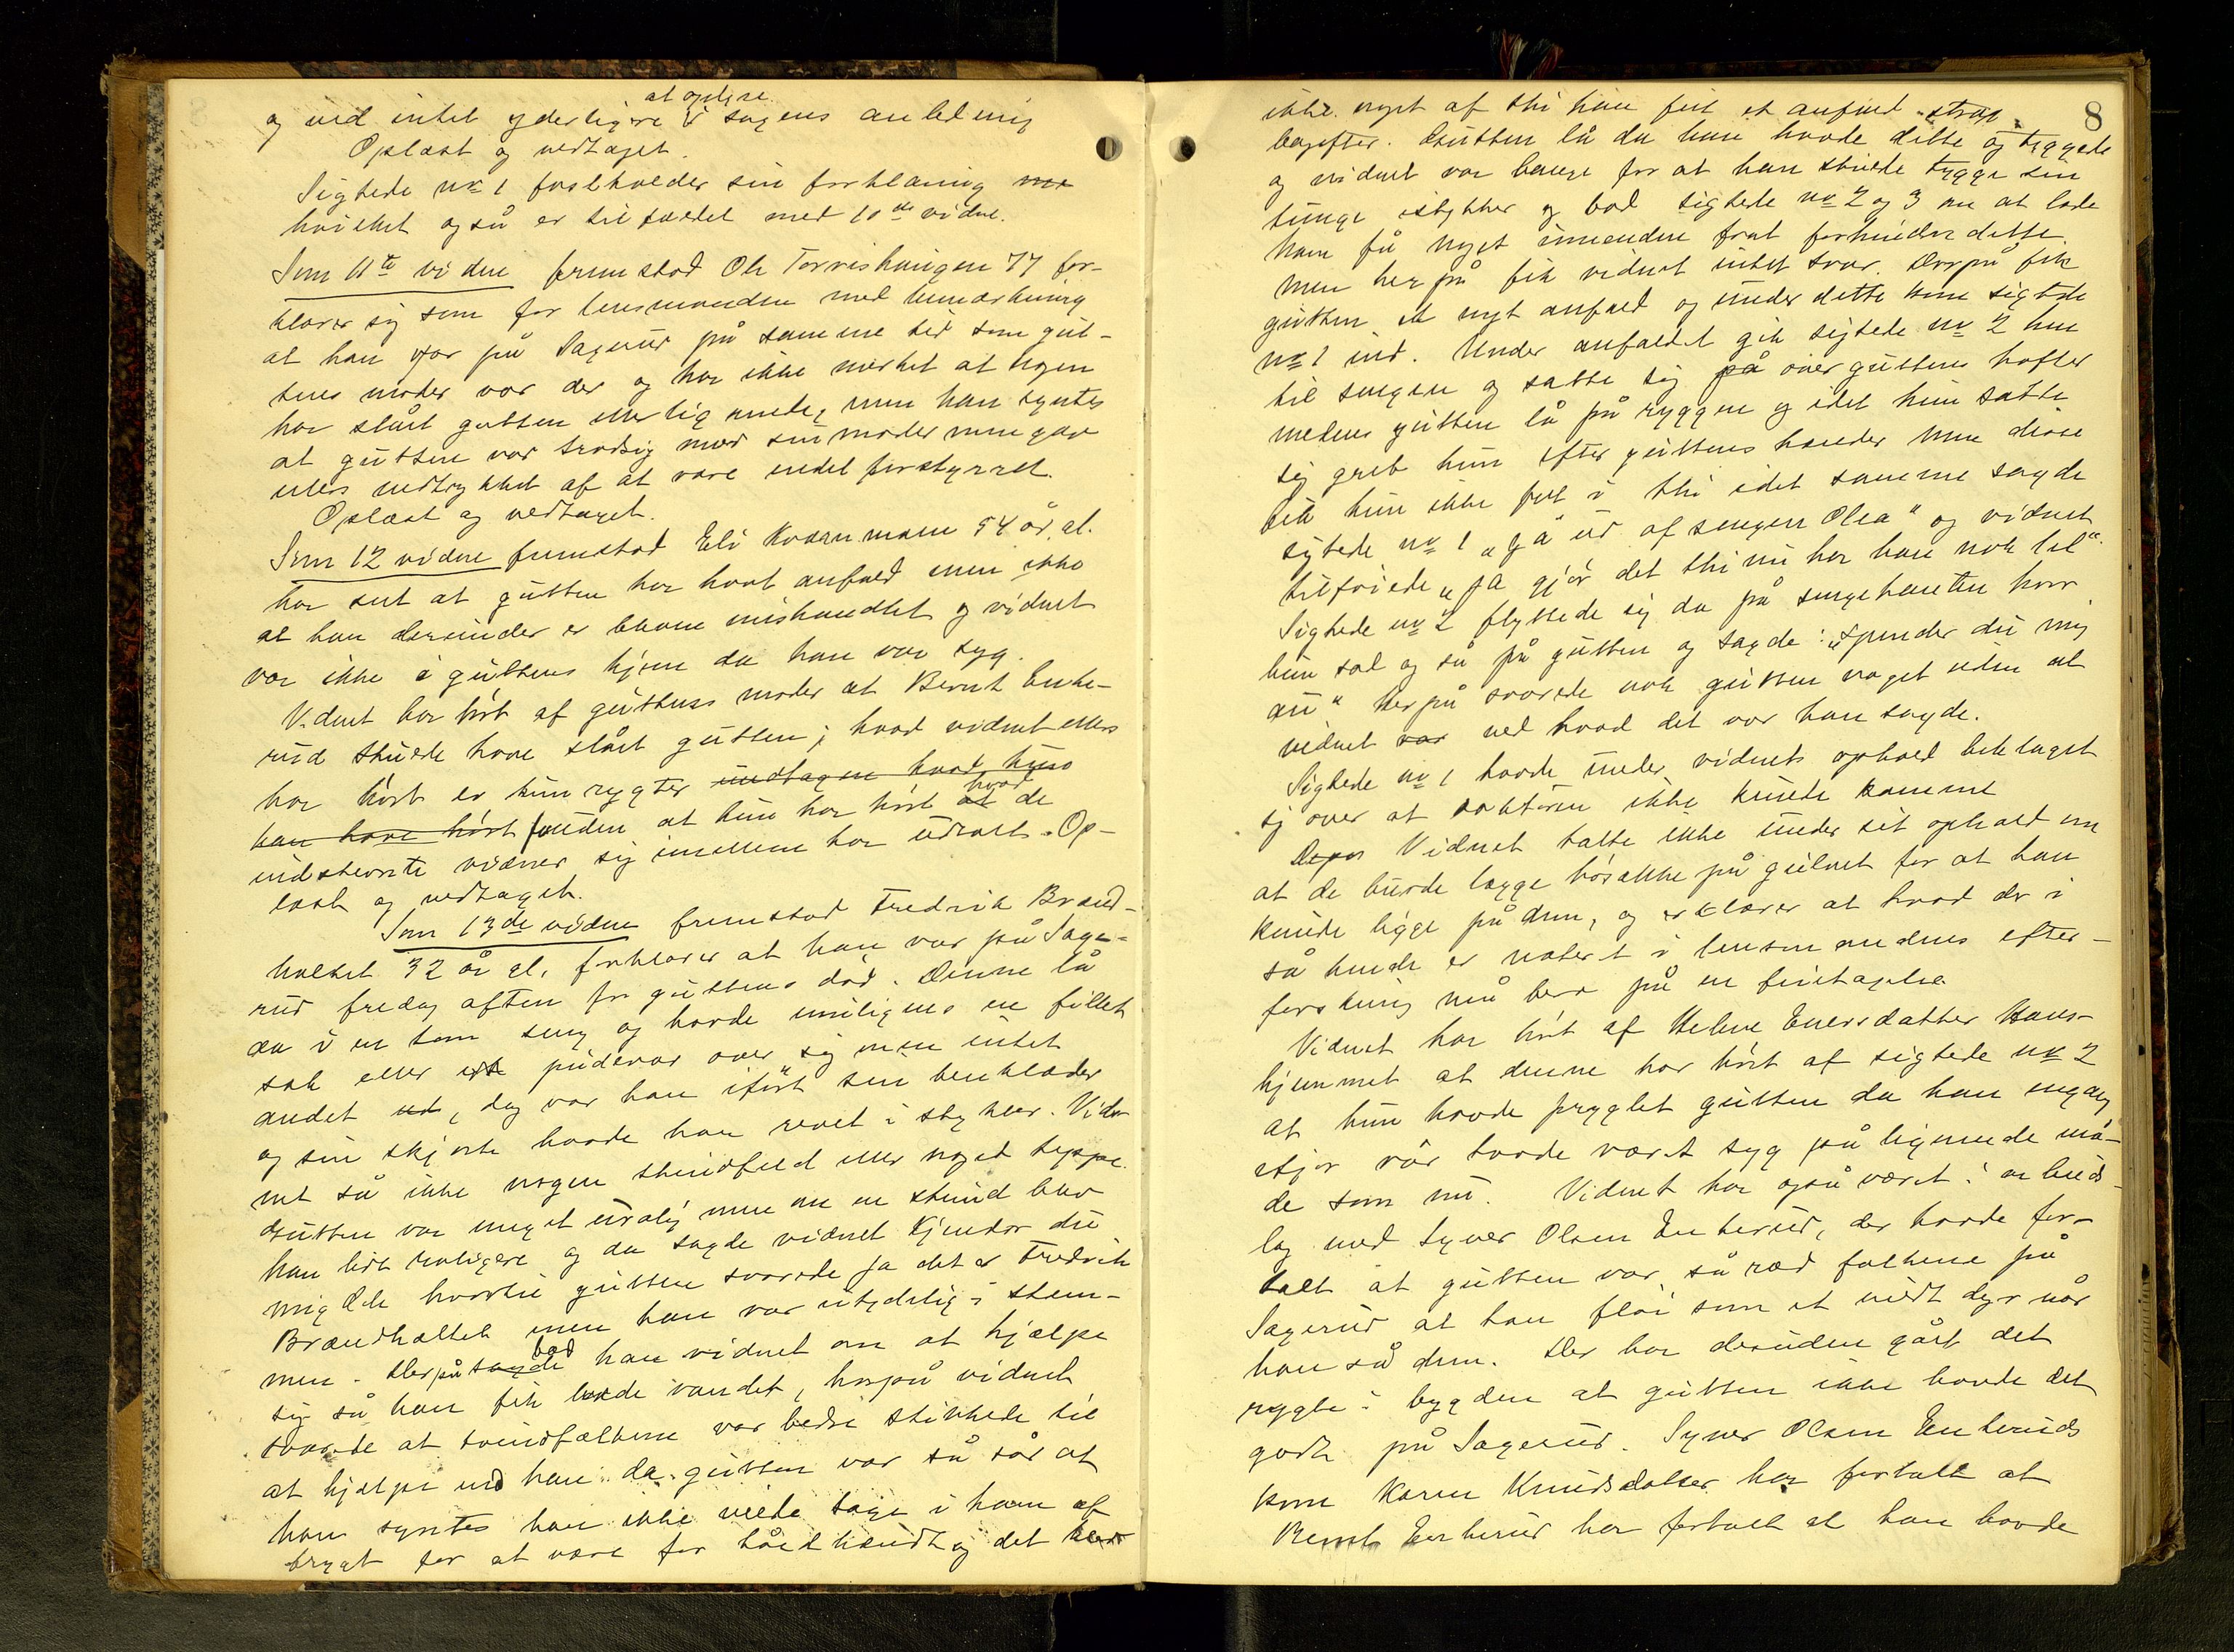 og ved intet yderligere at oplyse i sagens anledning
Oplæst og vedtaget.
Sigtede no 1 fastholder sin forklaring
hvilket også er tilfældet med 10de vidne.
Som 11te vidne fremstod Ole Torvishaugen 77 for-
klarer sig som for lensmanden med bemærkning
at han var på Sagerud på samme tid som gut-
tens moder var der og har ikke mærket at nogen
har slået gutten eller lignende, men han syntes
at gutten var trodsig mod sin moder men gav
ellers indtrykket af at være endel forstyrret.
Oplæst og vedtaget.
Som 12 vidne fremstod Eli Kværnmoen 54 år, al.
har set at gutten har havt anfald men ikke
at han derunder er bleven mishandlet og vidnet
var ikke i guttens hjem da han var syg.
Vidnet har hört af guttens moder at Bernt Enke-
rud skulde have slået gutten; hvad vidnet ellers
har hört er kun rygter undtagen hvad hun
kan have hört foruden at hun har hört at hvad de
indstevnte vidner sig imellem har udtalt. Op-
læst og vedtaget.
Som 13de vidne fremstod Fredrik Brænd-
holtet 32 år al. forklarer at han var på Sage-
rud fredag aften før guttens død. Denne lå
da i en tom seng og havde muligens en fillet
sæk eller et pudevar over sig men intet
andet ud, dog var han iført sin benklæder
og sin skjorte havde han revet i stykker. Vid-
net så ikke nogen skindfeld eller noget teppe.
Gutten var meget urolig men om en stund blev
han lidt roligere og da sagde vidnet kjender du
mig Ole hvortil gutten svarede ja det er Fredrik
Brændholtet men han var utydelig i stem-
men. Derpå sagde bad han vidnet om at hjælpe
sig så han fik lade vandet, hvorpå vidnet
svarede at kvindfolkene var bedre skikkede til
at hjælpe end han da gutten var så sår at
han syntes han ikke vilde tage i ham af
frygt for at være for hårdhændt og det blev
8
ikke noget af thi han fik et anfald strax
bagefter. Gutten lå da kun havde dette og tyggede
og vidnet var bange for at han skulde tygge sin
tunge istykker og bad sigtede no 2 og 3 om at lade
ham få noget imellem for at forhindre dette
men her på fik vidnet intet svar. Derpå fik
gutten et nyt anfald og under dette kom sigtede
no 1 ind. Under anfaldet gik sigtede no 2 hen
til sengen og satte sig på over guttens hofter
medens gutten lå på ryggen og idet hun satte
sig greb hun efter guttens hænder men disse
fik hun ikke fat i thi idet samme sagde
sigtede no 1 „gå ud af sengen Olea" og vidnet
tilføiede „ja gjör det thi nu har han nok lel".
Sigtede no 2 flyttede sig da på sengekanten hvor
hun sad og så på gutten og sagde: „Spender du mig
nu" herpå svarede nok gutten noget uden at
vidnet var ved hvad det var han sagde.
Sigtede no 1 havde under vidnets ophold beklaget
sig over at doktoren ikke kunde komme
Depon Vidnet talte ikke under sit ophold om
at de burde lægge hösække på gulvet for at han
kunde ligge på dem, og erklærer at hvad der i
så hende er noteret i lensmandens efter-
forskning må bero på en feiltagelse
Vidnet har hört af Helene Enersdatter Haus-
hjemmet at denne har hört af sigtede no 2
at hun havde pryglet gutten da han engang
ifjor vår havde været syg på lignende må-
de som nu. Vidnet har også været i arbeids-
lag med Syver Olsen Enkerud, der havde for-
talt at gutten var så ræd folkene på
Sagerud at han flöi som et vildt dyr når
han så dem. Der har desuden gået det
rygte i bygden at gutten ikke havde det
godt på Sagerud. Syver Olsen Enkeruds
kone Karen Knudsdatter har fortalt at
Bernt Enkerud har fortalt at han havde